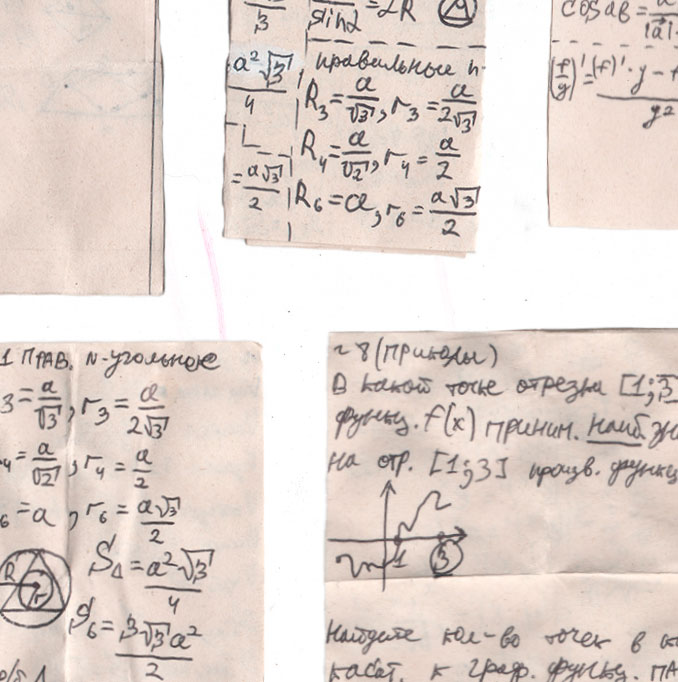 3
sin α = 2R
a²√3
4
= a√3
2
правильные n-
R₃ = a/√3, r₃ = a/2√3
R₄ = a/√2, r₄ = a/2
R₆ = a, r₆ = a√3/2
cos ab = 
|a|·
(f/g)' = (f)'·g - f
g²
1 ПРАВ. N-угольное
3 = a/√3, r₃ = a/2√3
4 = a/√2, r₄ = a/2
6 = a, r₆ = a√3/2
R
r
S△ = a²√3/4
S₆ = 3√3a²/2
№8 (приколы)
В какой точке отрезка [1;3]
функц. f(x) приним. наиб зн
на отр. [1;3] произв. функц
1 3
Найдите кол-во точек в к
касат. к граф. функц. па